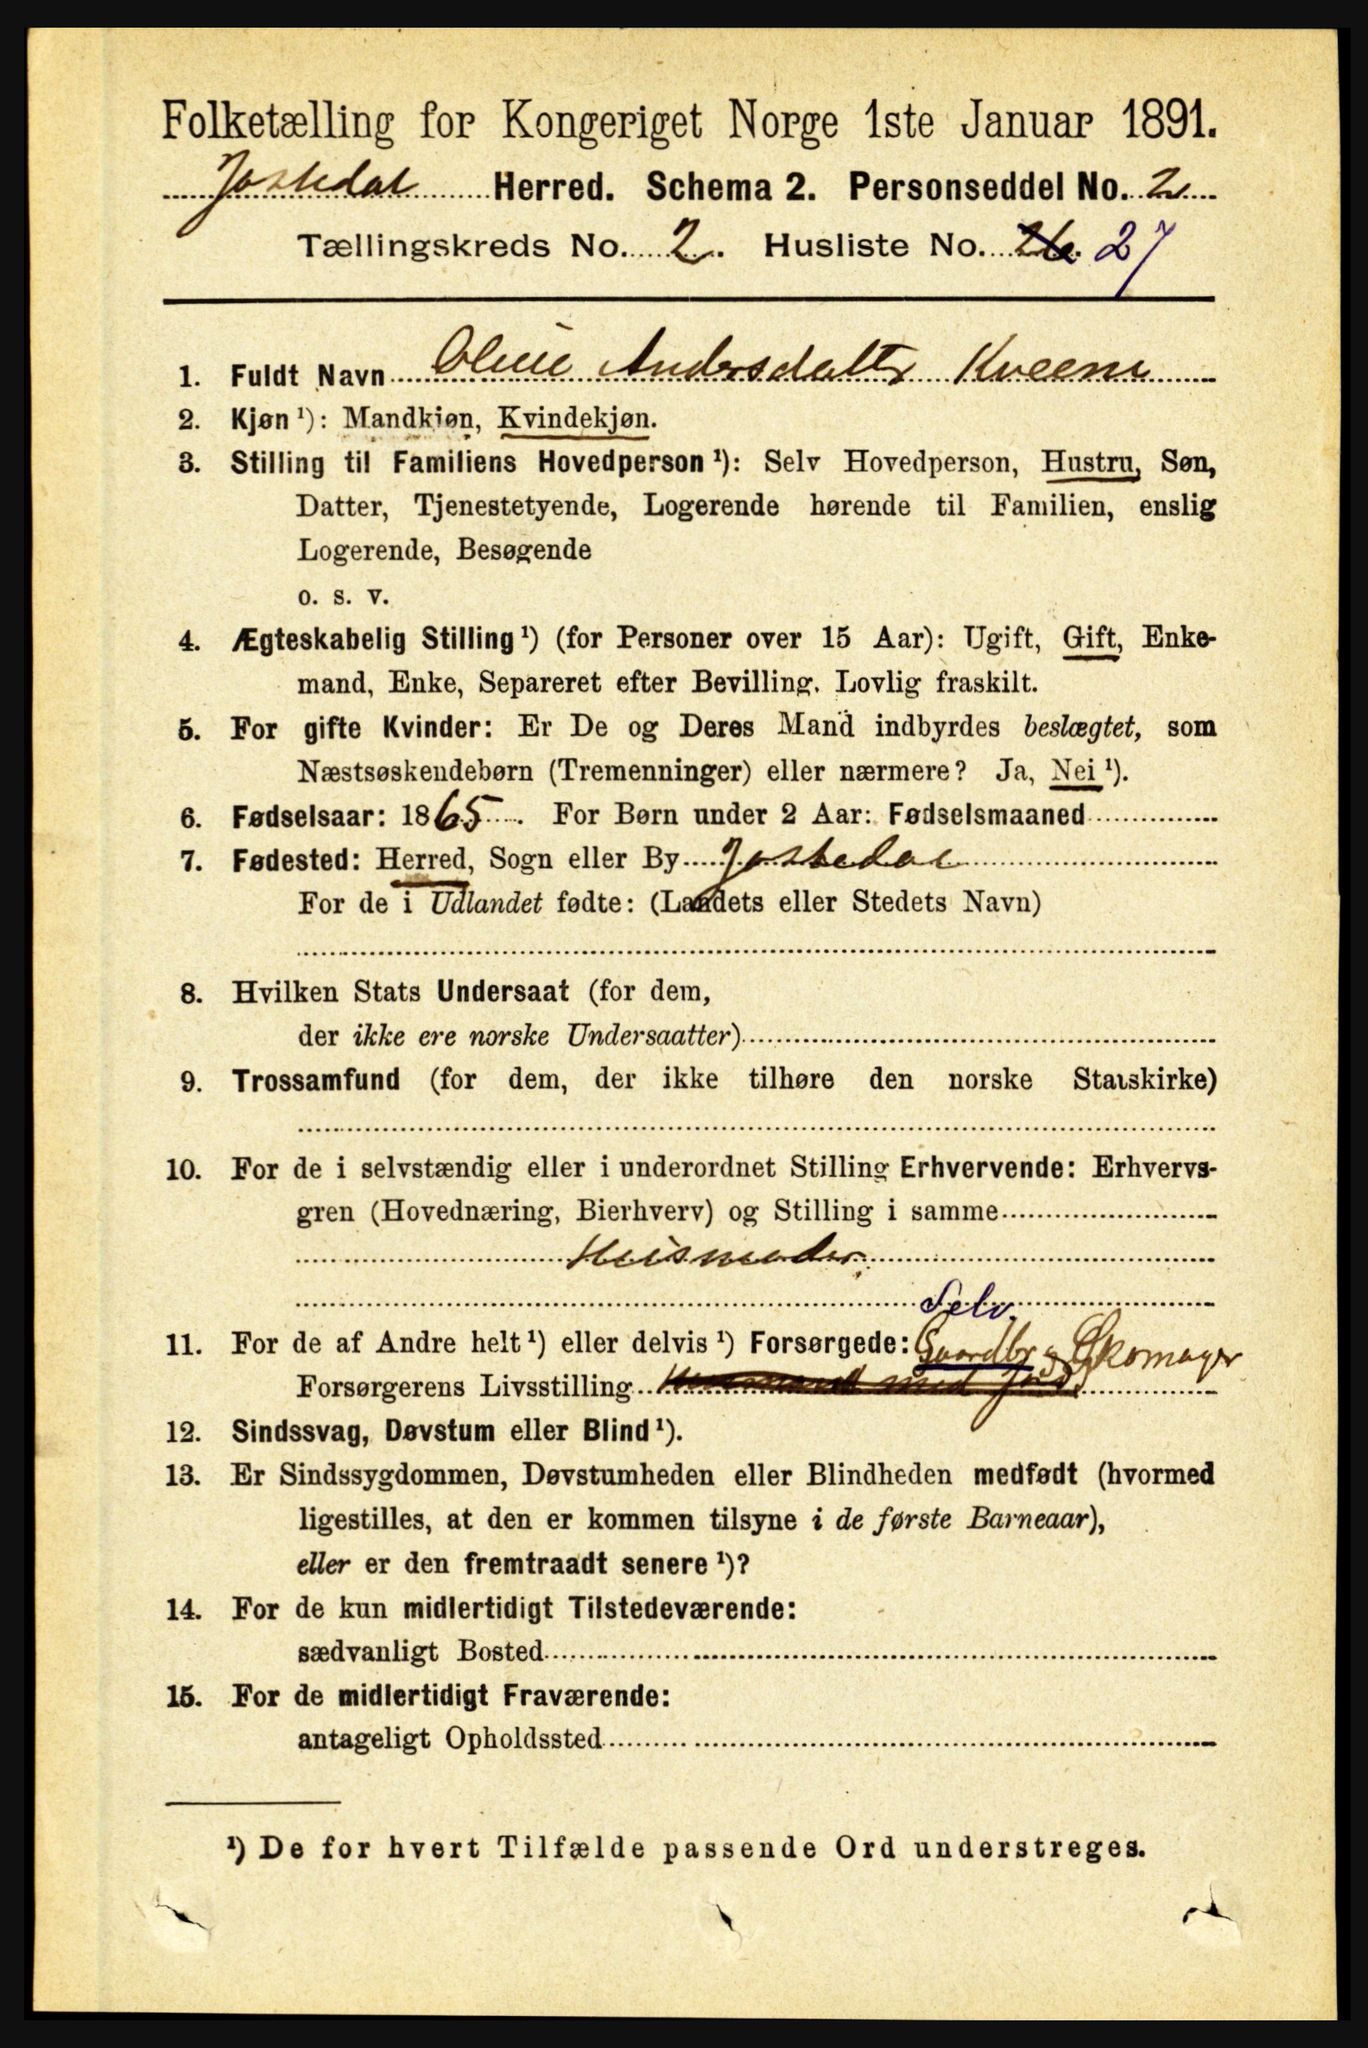 Folketælling for Kongeriget Norge 1ste Januar 1891.
Jostedal Herred. Schema 2. Personseddel No. 2
Tællingskreds No. 2. Husliste No. 26. 27
1. Fuldt Navn Oline Andersdatter Kveene
2. Kjøn ¹): Mandkjøn, Kvindekjøn.
3. Stilling til Familiens Hovedperson ¹): Selv Hovedperson, Hustru, Søn,
Datter, Tjenestetyende, Logerende hørende til Familien, enslig
Logerende, Besøgende
o. s. v.
4. Ægteskabelig Stilling ¹) (for Personer over 15 Aar): Ugift, Gift, Enke-
mand, Enke, Separeret efter Bevilling. Lovlig fraskilt.
5. For gifte Kvinder: Er De og Deres Mand indbyrdes beslægtet, som
Næstsøskendebørn (Tremenninger) eller nærmere? Ja, Nei ¹).
6. Fødselsaar: 1865. For Børn under 2 Aar: Fødselsmaaned
7. Fødested: Herred, Sogn eller By Jostedal
For de i Udlandet fødte: (Landets eller Stedets Navn)
8. Hvilken Stats Undersaat (for dem,
der ikke ere norske Undersaatter)
9. Trossamfund (for dem, der ikke tilhøre den norske Statskirke)
10. For de i selvstændig eller i underordnet Stilling Erhvervende: Erhvervs-
gren (Hovednæring, Bierhverv) og Stilling i samme
Husmoder
Selv.
11. For de af Andre helt ¹) eller delvis ¹) Forsørgede: Gaardbr. g Skomager
Forsørgerens Livsstilling Husmand med Jord
12. Sindssvag, Døvstum eller Blind ¹).
13. Er Sindssygdommen, Døvstumheden eller Blindheden medfødt (hvormed
ligestilles, at den er kommen tilsyne i de første Barneaar),
eller er den fremtraadt senere ¹)?
14. For de kun midlertidigt Tilstedeværende:
sædvanligt Bosted
15. For de midlertidigt Fraværende:
antageligt Opholdssted
¹) De for hvert Tilfælde passende Ord understreges.